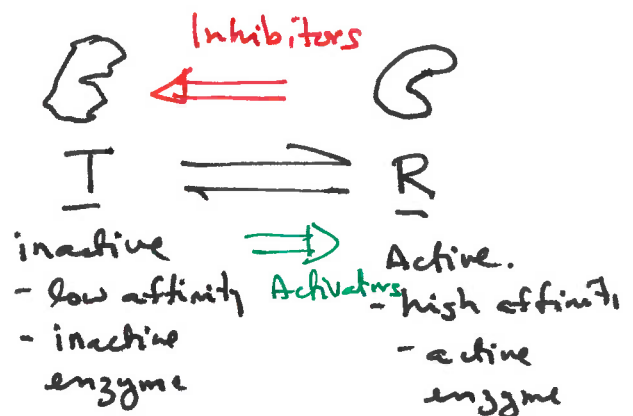 Inhibitors
T
R
inactive
- low affinity
- inactive
enzyme
Activators
Active.
- high affinity
- active
enzyme